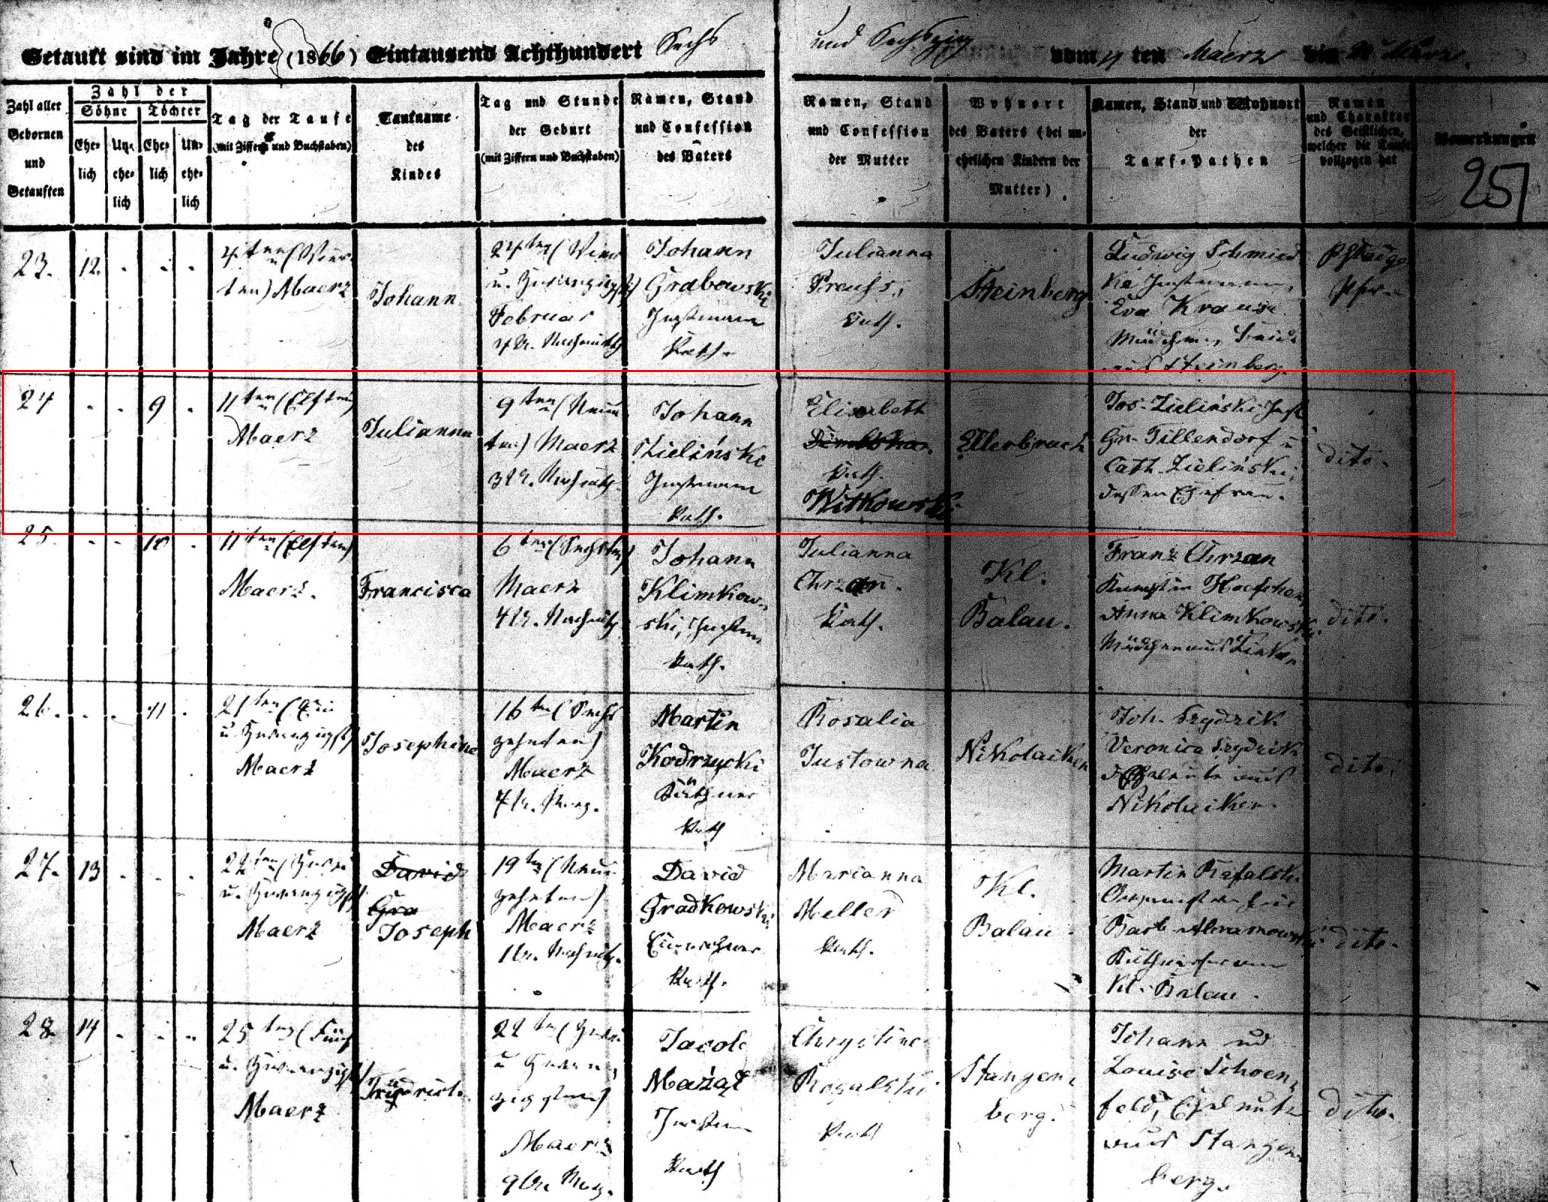 Getauft sind im Jahre (1866) Eintausend Achthundert Sechs und Sechszig vom 4 ten Maerz bis
Zahl aller Gebornen und Getauften
Zahl der
Söhne
Töchter
Ehe-lich
Un-ehe-lich
Ehe-lich
Un-ehe-lich
Tag der Taufe (mit Ziffern und Buchstaben)
Taufname des Kindes
Tag und Stunde der Geburt (mit Ziffern und Buchstaben)
Namen, Stand und Confession des Vaters
Namen, Stand und Confession der Mutter
Wohnort des Vaters (bei un-ehelichen Kindern der Mutter)
Namen, Stand und Wohnort der Tauf-Pathen
Namen und Charakter des Geistlichen, welcher die Taufe vollzogen hat
Bemerkungen
251
23. 12. 4ten (Vier-
ten) Maerz
Johann
24ten (Vier
u. Zwanzigsten)
Februar
4 U. Nachmittg
Johann
Grabowski
Instmann
Kath.
Julianna
Preuss,
Kath.
Steinberg
Ludwig Schmied
ke Instmann,
Eva Krause
Mädchen, beide
aus Steinberg.
Pfarrer
24 9 11ten (Elften)
Maerz
Julianna
9ten (Neun
ten) Maerz
3 U. Nachmitt.
Johann
Zieliński
Instmann
Kath.
Elisabeth
Kath.
Witkowski
Ellerbruch
Jos. Zieliński Inst
Gr. Tillendorf u
Cath. Zielinski,
dessen Ehefrau.
dito.
25. 10 11ten (Elften)
Maerz.
Francisca
6ten (Sechsten)
Maerz
4 U. Nachmitt
Johann
Klimkow-
ski, Instm
Kath.
Julianna
Chrzan.
Kath.
Kl.
Balau.
Franz Chrzan
Anna Klimkowski
Mädchen aus
dito.
26. 11. 21ten (Ein
u. Zwanzigst)
Maerz
Josephine
16ten (Sechs
zehnten)
Maerz
4 U. Morg.
Martin
Kodrzycki
Käthner
Kath
Rosalia
Justowna
Nikolaiken
Joh. Szydzik
Veronica Szydzik
Eheleute aus
Nikolaiken.
dito.
27. 13 22ten (Zwei
u. Zwanzigst)
Maerz
David
Gra
Joseph
19ten (Neun
zehnten)
Maerz
1 U. Nachmitt.
David
Gradkowski
Einwohner
Kath.
Marianna
Meller
Kath.
Kl.
Balau.
Martin Rafalski
Barb Abramowski
Kl. Balau.
dito.
28. 14 25ten (Fünf
u. Zwanzigst)
Maerz
Friedrich.
22ten (Zwei
u Zwan-
zigsten)
Maerz
9 Uhr Morg.
Jacob
Instm
Kath
Christine
Rogalski
Kath
Stangen-
berg.
Johann und
Louise Schoen-
feld, Eheleute
aus Stangen-
berg.
dito.